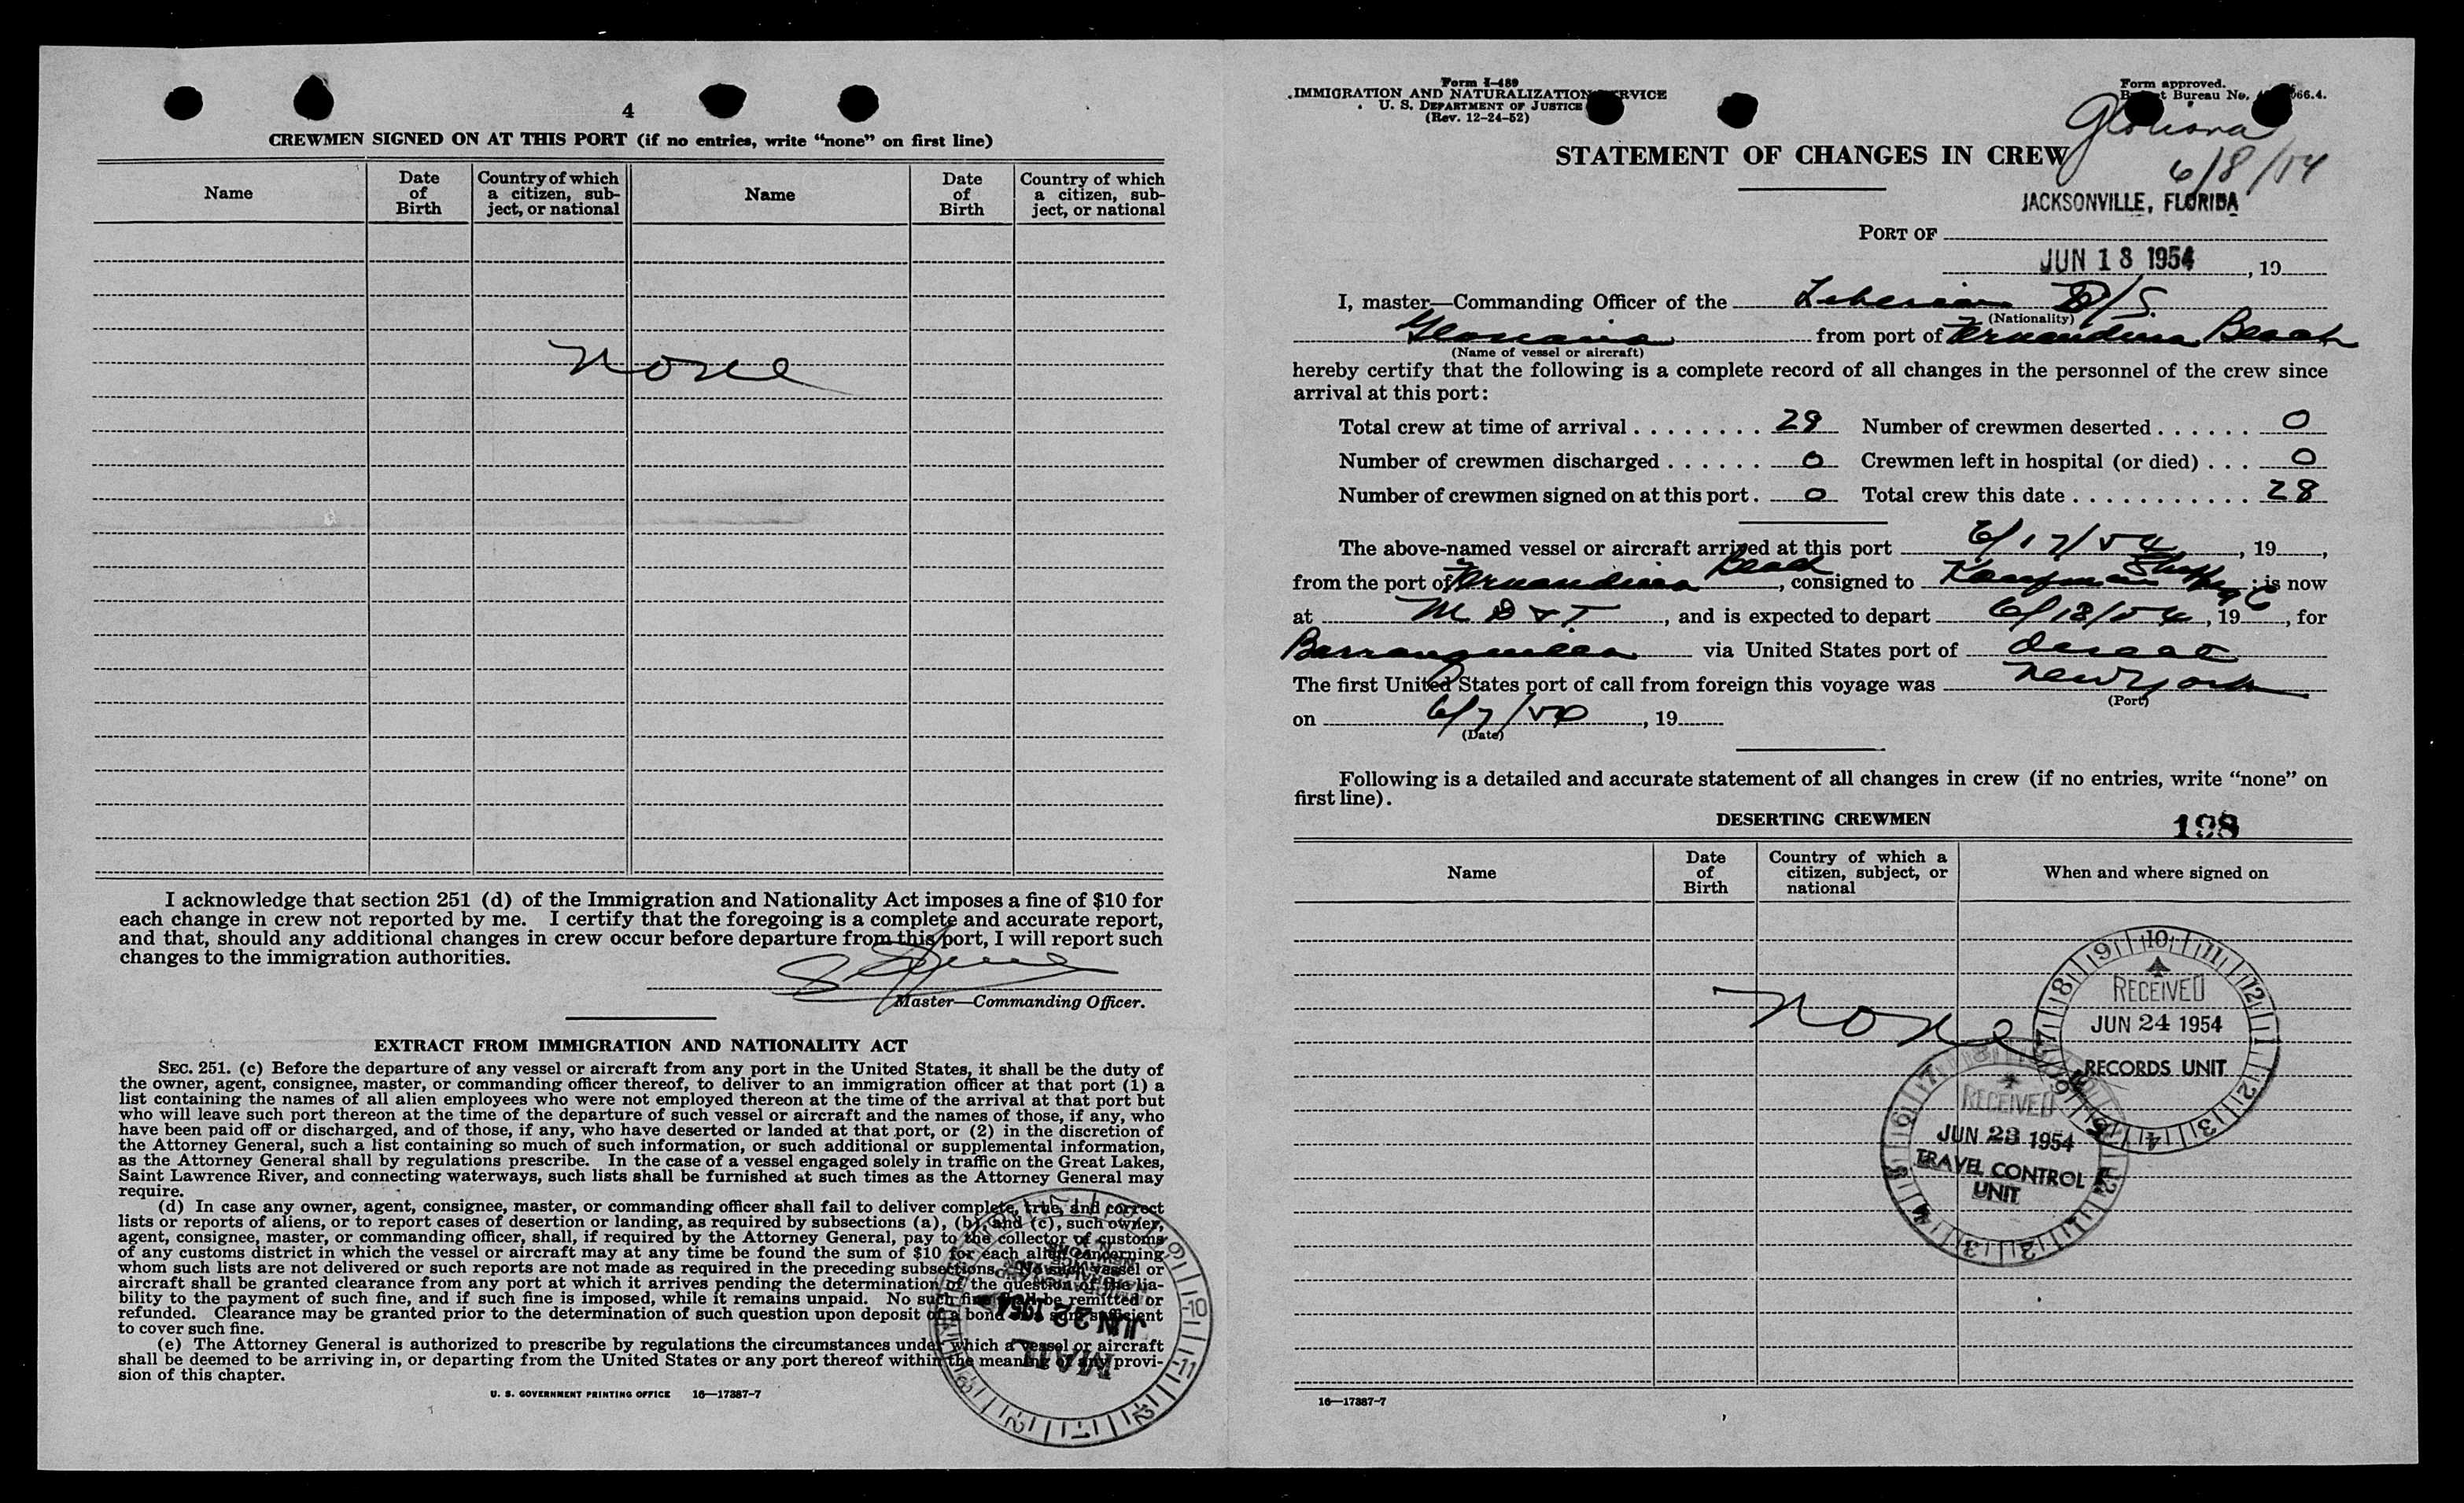 4
CREWMEN SIGNED ON AT THIS PORT (if no entries, write “none” on first line)
Name
Date of Birth
Country of which a citizen, subject, or national
Name
Date of Birth
Country of which a citizen, sub-ject, or national
none
I acknowledge that section 251 (d) of the Immigration and Nationality Act imposes a fine of $10 for
each change in crew not reported by me. I certify that the foregoing is a complete and accurate report,
and that, should any additional changes in crew occur before departure from this port, I will report such
changes to the immigration authorities.
Master—Commanding Officer.
EXTRACT FROM IMMIGRATION AND NATIONALITY ACT
SEC. 251. (c) Before the departure of any vessel or aircraft from any port in the United States, it shall be the duty of
the owner, agent, consignee, master, or commanding officer thereof, to deliver to an immigration officer at that port (1) a
list containing the names of all alien employees who were not employed thereon at the time of the arrival at that port but
who will leave such port thereon at the time of the departure of such vessel or aircraft and the names of those, if any, who
have been paid off or discharged, and of those, if any, who have deserted or landed at that port, or (2) in the discretion of
the Attorney General, such a list containing so much of such information, or such additional or supplemental information,
as the Attorney General shall by regulations prescribe. In the case of a vessel engaged solely in traffic on the Great Lakes,
Saint Lawrence River, and connecting waterways, such lists shall be furnished at such times as the Attorney General may
require.
(d) In case any owner, agent, consignee, master, or commanding officer shall fail to deliver complete, true, and correct
lists or reports of aliens, or to report cases of desertion or landing, as required by subsections (a), (b), and (c), such owner,
agent, consignee, master, or commanding officer, shall, if required by the Attorney General, pay to the collector of customs
of any customs district in which the vessel or aircraft may at any time be found the sum of $10 for each alien concerning
whom such lists are not delivered or such reports are not made as required in the preceding subsections. No such vessel or
aircraft shall be granted clearance from any port at which it arrives pending the determination of the question of the lia-
bility to the payment of such fine, and if such fine is imposed, while it remains unpaid. No such fine shall be remitted or
refunded. Clearance may be granted prior to the determination of such question upon deposit of a bond or sum sufficient
to cover such fine.
(e) The Attorney General is authorized to prescribe by regulations the circumstances under which a vessel or aircraft
shall be deemed to be arriving in, or departing from the United States or any port thereof within the meaning of any provi-
sion of this chapter.
MAIL
JUN 22 1954
U. S. GOVERNMENT PRINTING OFFICE 16—17387-7
Form I-489
IMMIGRATION AND NATURALIZATION SERVICE
U. S. DEPARTMENT OF JUSTICE
(Rev. 12-24-52)
Form approved.
Bureau No. 066.4.
6/8/54
STATEMENT OF CHANGES IN CREW
JACKSONVILLE, FLORIDA
PORT OF
JUN 18 1954, 19
I, master—Commanding Officer of the Liberian S/S
(Nationality)
from port of Fernandina Beach
(Name of vessel or aircraft)
hereby certify that the following is a complete record of all changes in the personnel of the crew since
arrival at this port:
Total crew at time of arrival 28 Number of crewmen deserted 0
Number of crewmen discharged 0 Crewmen left in hospital (or died) 0
Number of crewmen signed on at this port. 0 Total crew this date 28
The above-named vessel or aircraft arrived at this port 6/17/54, 19,
from the port of Fernandina Beach, consigned to Kaufman Shipping Co; is now
at M D & T, and is expected to depart 6/18/54, 19, for
Barranquilla via United States port of direct
The first United States port of call from foreign this voyage was New York
(Port)
on 6/7/54, 19
(Date)
Following is a detailed and accurate statement of all changes in crew (if no entries, write “none” on
first line).
DESERTING CREWMEN
198
Name
Date of Birth
Country of which a citizen, subject, or national
When and where signed on
none
RECEIVED
JUN 24 1954
RECORDS UNIT
RECEIVED
JUN 23 1954
TRAVEL CONTROL
UNIT
16—17387-7